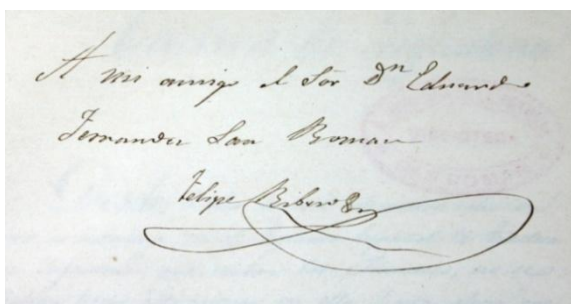 A mi amigo el Sór Dn Eduardo
Fernandez San Roman
Felipe Ribero